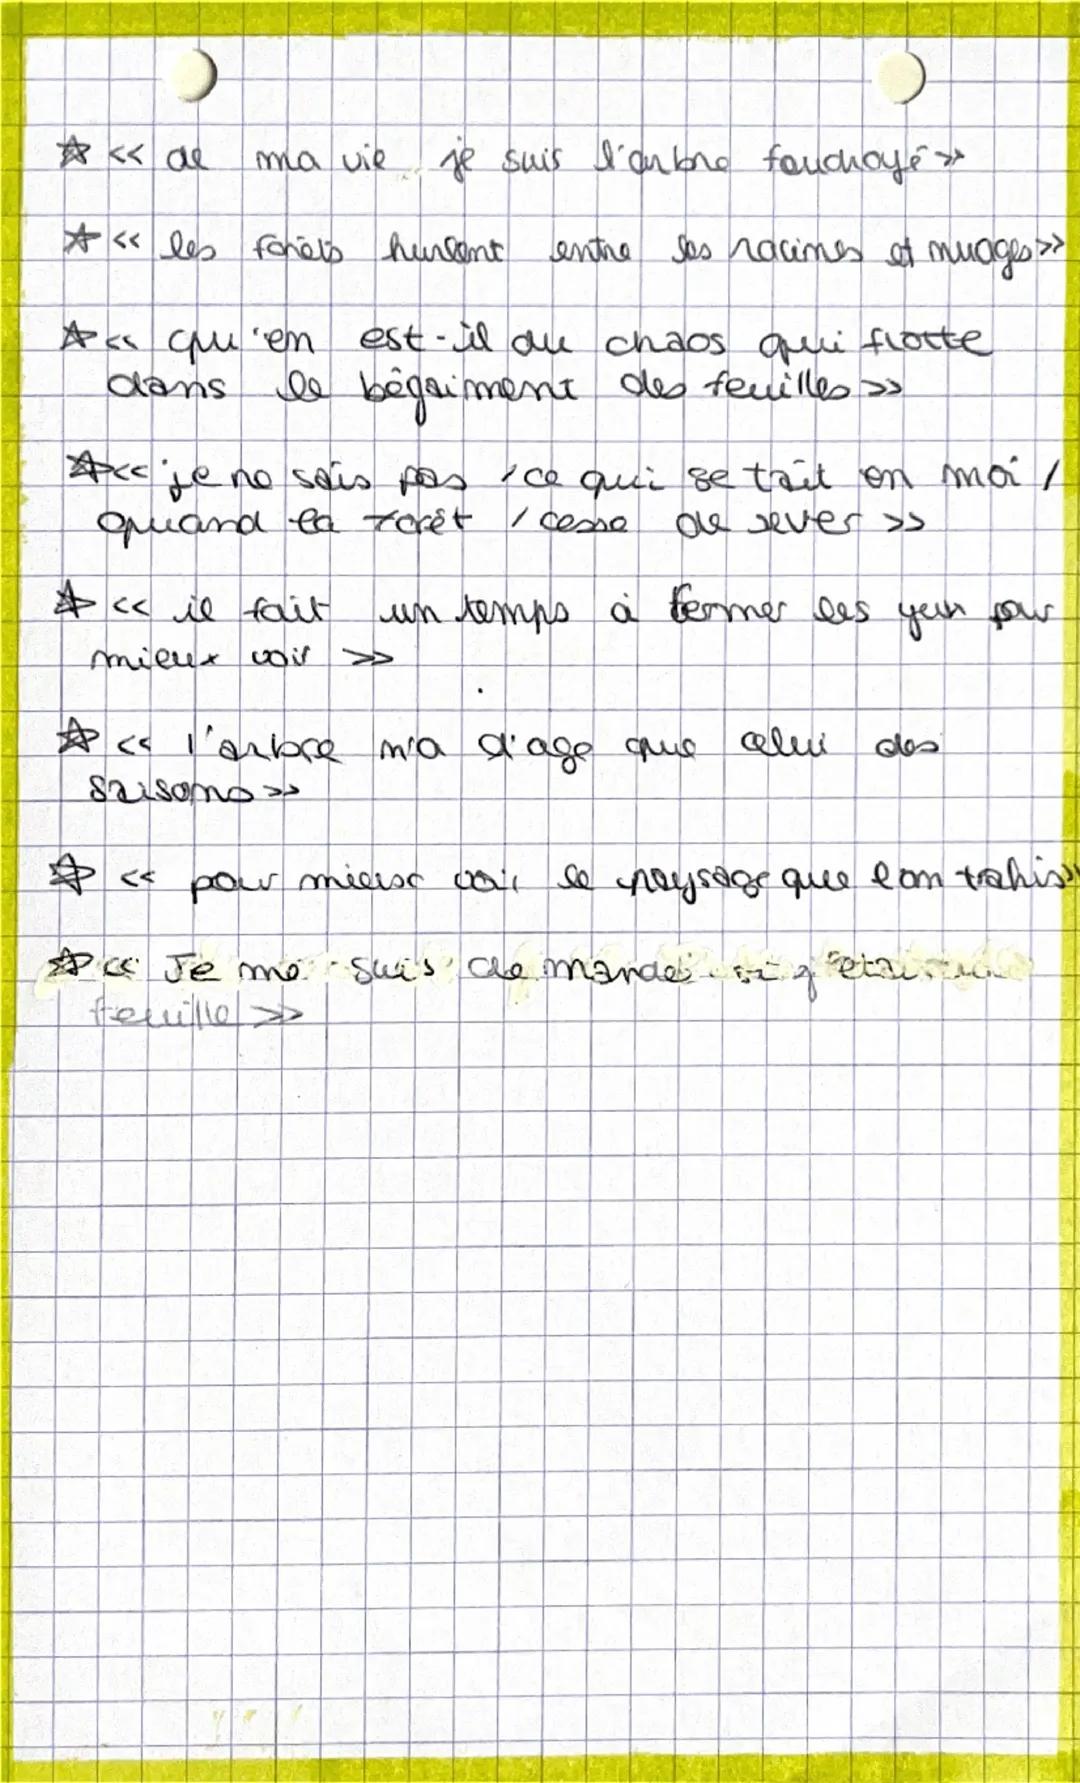 « de ma vie je suis l'arbre foudroyé »
« les forêts hurlent entre les racines et nuages »
« qu'en est-il du chaos qui flotte
dans le bégaiment des feuilles »
« je ne sais pas / ce qui se tait en moi /
quand la forêt / cesse de rever »
« il fait un temps à fermer les yeux pour
mieux voir »
« l'arbre n'a d'age que celui des
saisons »
« pour mieux voir le paysage que l'on trahis »
« Je me suis demandé si j'étais
feuille »